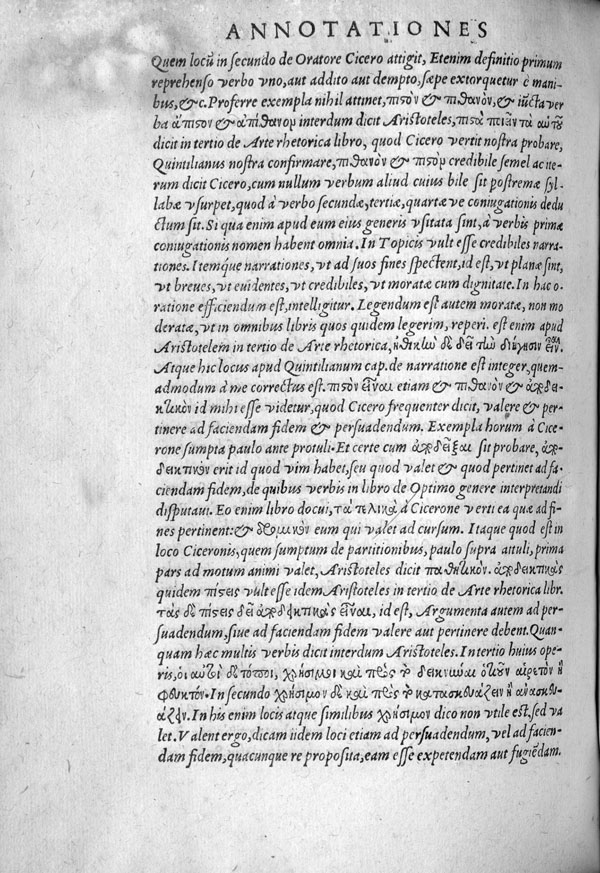 ANNOTATIONES
Quem locũ in secundo de Oratore Cicero attigit, Etenim definitio primum
reprehenso verbo vno, aut addito aut dempto, sæpe extorquetur è mani-
bus, & c. Proferre exempla nihil attinet, πισὸν & πιθανὸν, & iũcta ver
ba ἄπισον & ἀπίθανον interdum dicit Aristoteles, πισὰ ποιεῖν τὰ αὑτοῦ
dicit in tertio de Arte rhetorica libro, quod Cicero vertit nostra probare,
Quintilianus nostra confirmare, πιθανὸν & πισὸν credibile semel ac ite-
rum dicit Cicero, cum nullum verbum aliud cuius bile sit postremæ syl-
labæ vsurpet, quod à verbo secundæ, tertiæ, quartæ ve coniugationis dedu
ctum sit. Si qua enim apud eum eius generis vsitata sint, à verbis primæ
coniugationis nomen habent omnia. In Topicis vult esse credibiles narra-
tiones. Itemque narrationes, vt ad suos fines spectent, id est, vt planæ sint,
vt breues, vt euidentes, vt credibiles, vt moratæ cum dignitate. In hac o-
ratione efficiendum est, intelligitur. Legendum est autem moratæ, non mo
deratæ, vt in omnibus libris quos quidem legerim, reperi. est enim apud
Aristotelem in tertio de Arte rhetorica, ἠθικὴν δὲ δεῖ τὴν διήγησιν εἶναι.
Atque hic locus apud Quintilianum cap. de narratione est integer, quem-
admodum à me correctus est. πισὸν εἶναι etiam & πιθανὸν & ἀποδει-
κτικὸν id mihi esse videtur, quod Cicero frequenter dicit, valere & per-
tinere ad faciendam fidem & persuadendum. Exempla horum à Cice-
rone sumpta paulo ante protuli. Et certe cum ἀποδεῖξαι sit probare, ἀπο-
δεικτικὸν erit id quod vim habet, seu quod valet & quod pertinet ad fa-
ciendam fidem, de quibus verbis in libro de Optimo genere interpretandi
disputaui. Eo enim libro docui, τὰ τελικὰ à Cicerone verti ea quæ ad fi-
nes pertinent: & δρομικὸν eum qui valet ad cursum. Itaque quod est in
loco Ciceronis, quem sumptum de partitionibus, paulo supra attuli, prima
pars ad motum animi valet, Aristoteles dicit παθητικὸν. ἀποδεικτικὰς
quidem πίσεις vult esse idem Aristoteles in tertio de Arte rhetorica libr.
τὰς δὲ πίσεις δεῖ ἀποδεικτικὰς εἶναι, id est, Argumenta autem ad per-
suadendum, siue ad faciendam fidem valere aut pertinere debent. Quan-
quam hæc multis verbis dicit interdum Aristoteles. In tertio huius ope-
ris, οἱ αὐτοὶ δὲ τόποι, χρήσιμοι καὶ πρὸς τὸ δεικνύναι ὁτιοῦν αἱρετὸν ἢ
φευκτόν. In secundo χρήσιμον δὲ καὶ πρὸς τὸ κατασκευάζειν ἢ ἀνασκευ-
άζειν. In his enim locis atque similibus χρήσιμον dico non vtile est, sed va
let. Valent ergo, dicam iidem loci etiam ad persuadendum, vel ad facien-
dam fidem, quacunque re proposita, eam esse expetendam aut fugiẽdam.